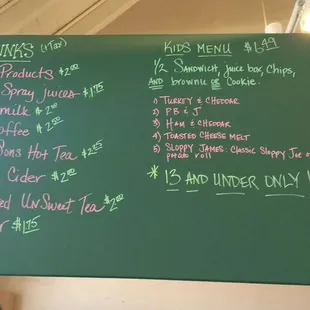 NKS (+TAX)
PRODUCTS $2.00
SPRAY JUICES $1.75
MILK $2.00
OFFEE $2.50
ONS HOT TEA $2.25
CIDER $2.00
ED UNSWEET TEA $2.00
R $1.75
KIDS MENU $6.49
1/2 SANDWICH, JUICE BOX, CHIPS,
AND BROWNIE OR COOKIE.
1) TURKEY & CHEDDAR
2) P.B & J
3) HAM & CHEDDAR
4) TOASTED CHEESE MELT
5) SLOPPY JAMES: CLASSIC SLOPPY JOE O
POTATO ROLL
* 13 AND UNDER ONLY